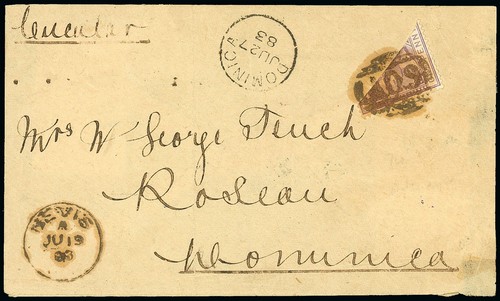 Circular
DOMINICA
JU 27
83
PENN
A09
Mrs W George Tench
Roseau
Dominica
NEVIS
A
JU 19
83